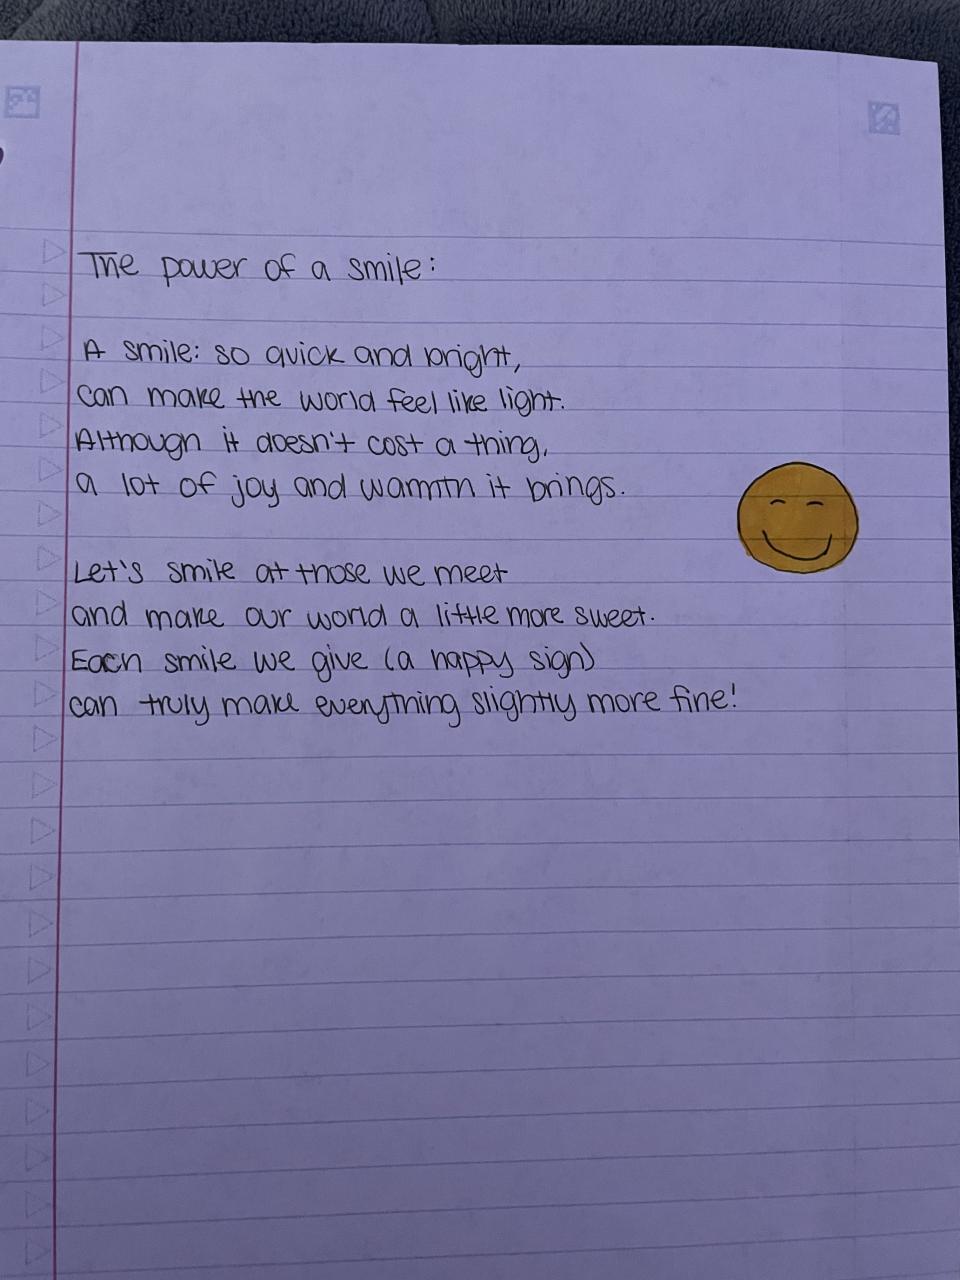 The power of a smile:
A smile: so quick and bright,
can make the world feel like light.
Although it doesn't cost a thing,
a lot of joy and warmth it brings.
Let's smile at those we meet
and make our world a little more sweet.
Each smile we give (a happy sign)
can truly make everything slightly more fine!